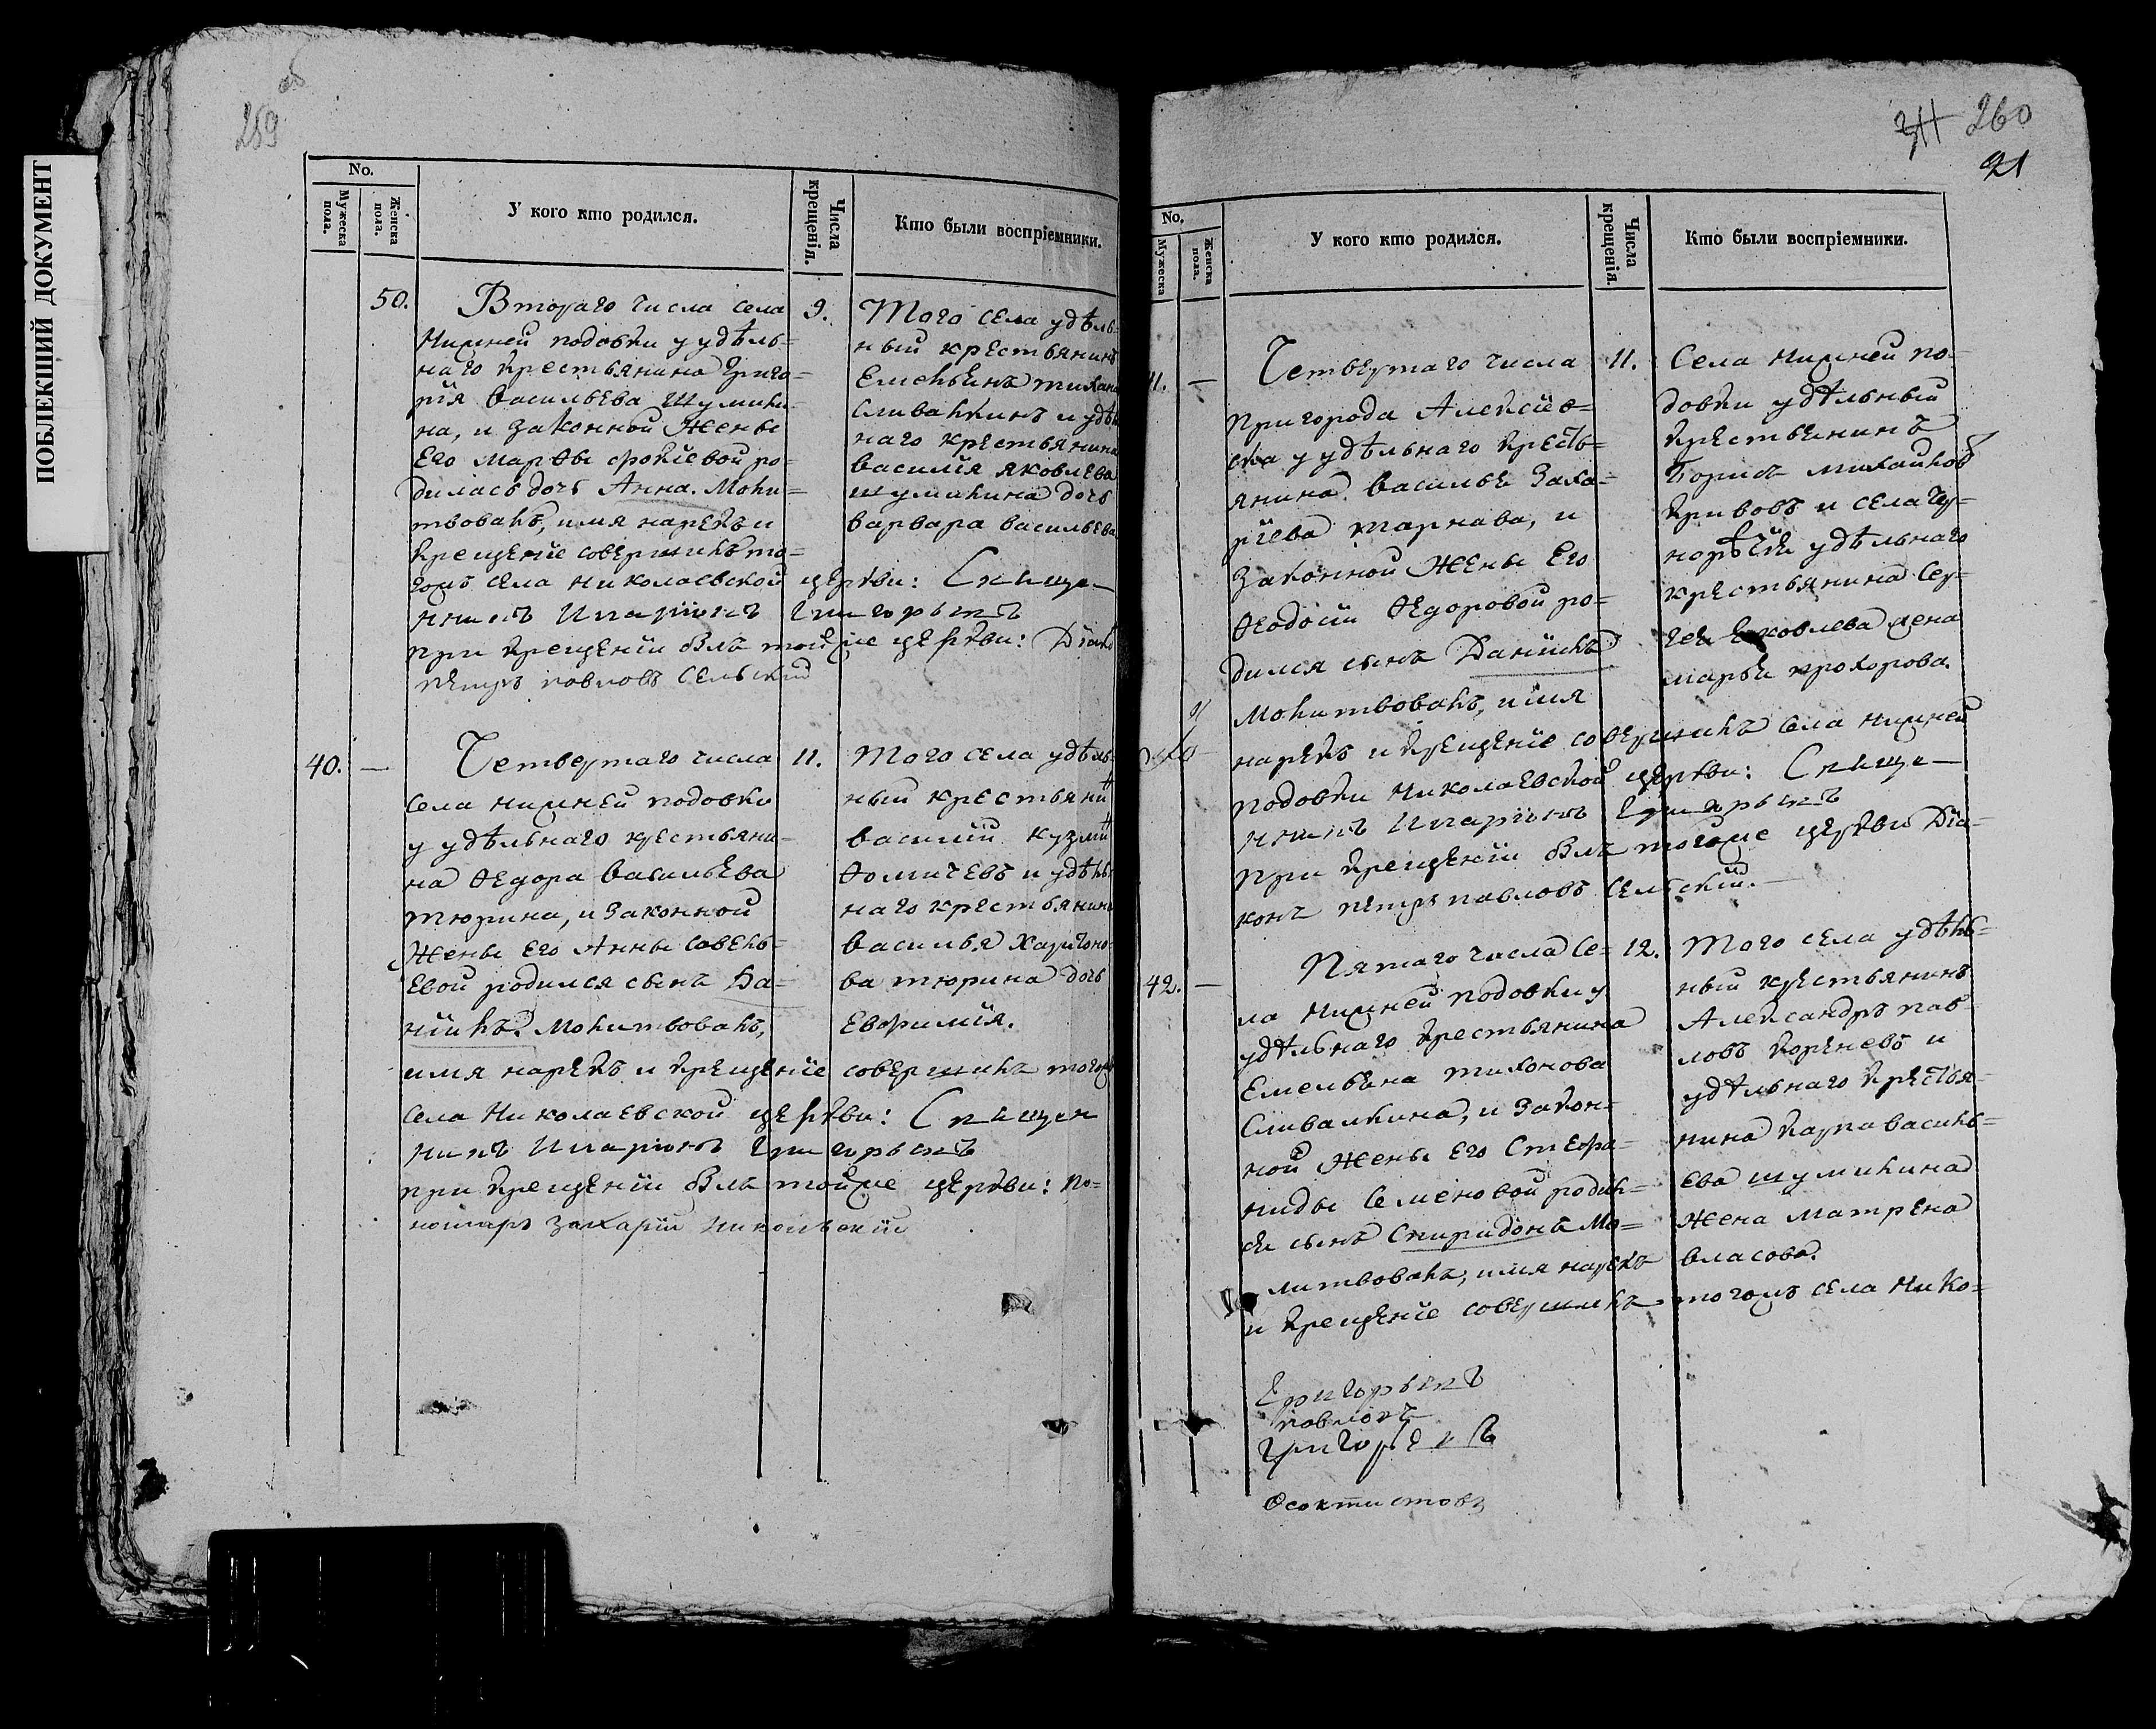 ПОБЛЕКШИЙ ДОКУМЕНТ
259 об
No.
Мужеска пола.
Женска пола.
У кого кто родился.
Числа крещенія.
Кто были воспріемники.
50.
Втораго числа села
Нижней подовки у удѣль=
наго крестьянина Григо=
рія Васильева Шумили=
на, и Законной Жены
Его Марѳы
дилась дочь Анна. Моли=
твовалъ, имя нарекъ и
крещеніе совершилъ то=
гожъ села Николаевской церкви: Священ
никъ Иларіонъ
при крещеніи былъ тойже церкви: Діако
петръ павловъ Сельскій
9.
Того села удѣль=
ный крестьянинъ
Емельянъ тихано
Сливалкинъ и удѣл
наго крестьянина
василія яковлева
шумилина дочь
варвара васильева
40. —
Четвертаго числа
села нижней подовки
у удѣльнаго крестьяни=
на Ѳедора Васильева
тюрина, и Законной
Жены Его Анны савель=
евой родился сынъ Да=
ніилъ. Молитвовалъ,
имя нарекъ и крещеніе совершилъ тогожъ
села Николаевской церкви: Священ
никъ Иларіонъ
при крещеніи былъ тойже церкви: по=
номарь Захарій Никольскій
11.
Того села удѣль
ный крестьянин
василій кузмин
Ѳомичевъ и удѣль
наго крестьянина
Василья Харитоно=
ва тюрина дочь
Евфимія.
311 260
21
No.
Мужеска
Женска пола.
У кого кто родился.
Числа крещенія.
Кто были воспріемники.
41. —
Четвертаго числа
пригорода Алексѣев=
ска у удѣльнаго кресть=
янина Василья Заха=
ріева тарнава, и
Законной Жены Его
Ѳеодосіи Ѳедоровой ро=
дился сынъ Даніилъ
Молитвовалъ, имя
нарекъ и крещеніе совершилъ села нижней
подовки Николаевской церкви: Священ
никъ Иларіонъ
при крещеніи былъ тогоже церкви Діа=
конъ петръ павловъ Сельскій.
11.
Села нижней по=
довки удѣльный
крестьянинъ
Борисъ михайлов
кривовъ и села Чу=
норѣчки удѣльнаго
крестьянина Сер=
гея яковлева жена
марья прохорова.
42. —
Пятаго числа Се=
ла Нижней подовки у
удѣльнаго крестьянина
Емельяна тихонова
Сливалкина, и Закон=
ной Жены Его Стефа=
ниды Семеновой родил=
ся сынъ Спиридонъ Мо=
литвовалъ, имя нарекъ
и крещеніе совершилъ тогожъ села Нико=
12.
Того села удѣль=
ный крестьянинъ
Александръ пав=
ловъ кореневъ и
удѣльнаго крестья=
нина карпа василь=
ева шумилина
Жена Матрена
власова.
павловъ
Ѳеоктистовъ